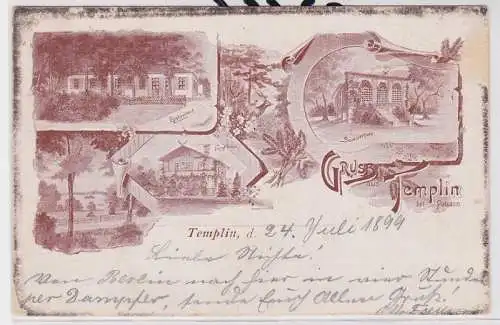 Gruss
aus
Templin
bei Potsdam
Templin, d. 24. Juli 1899
Liebe Nichte!
Von Berlin nach hier in vier Stunden
per Dampfer, sende Euch Allen Gruß.